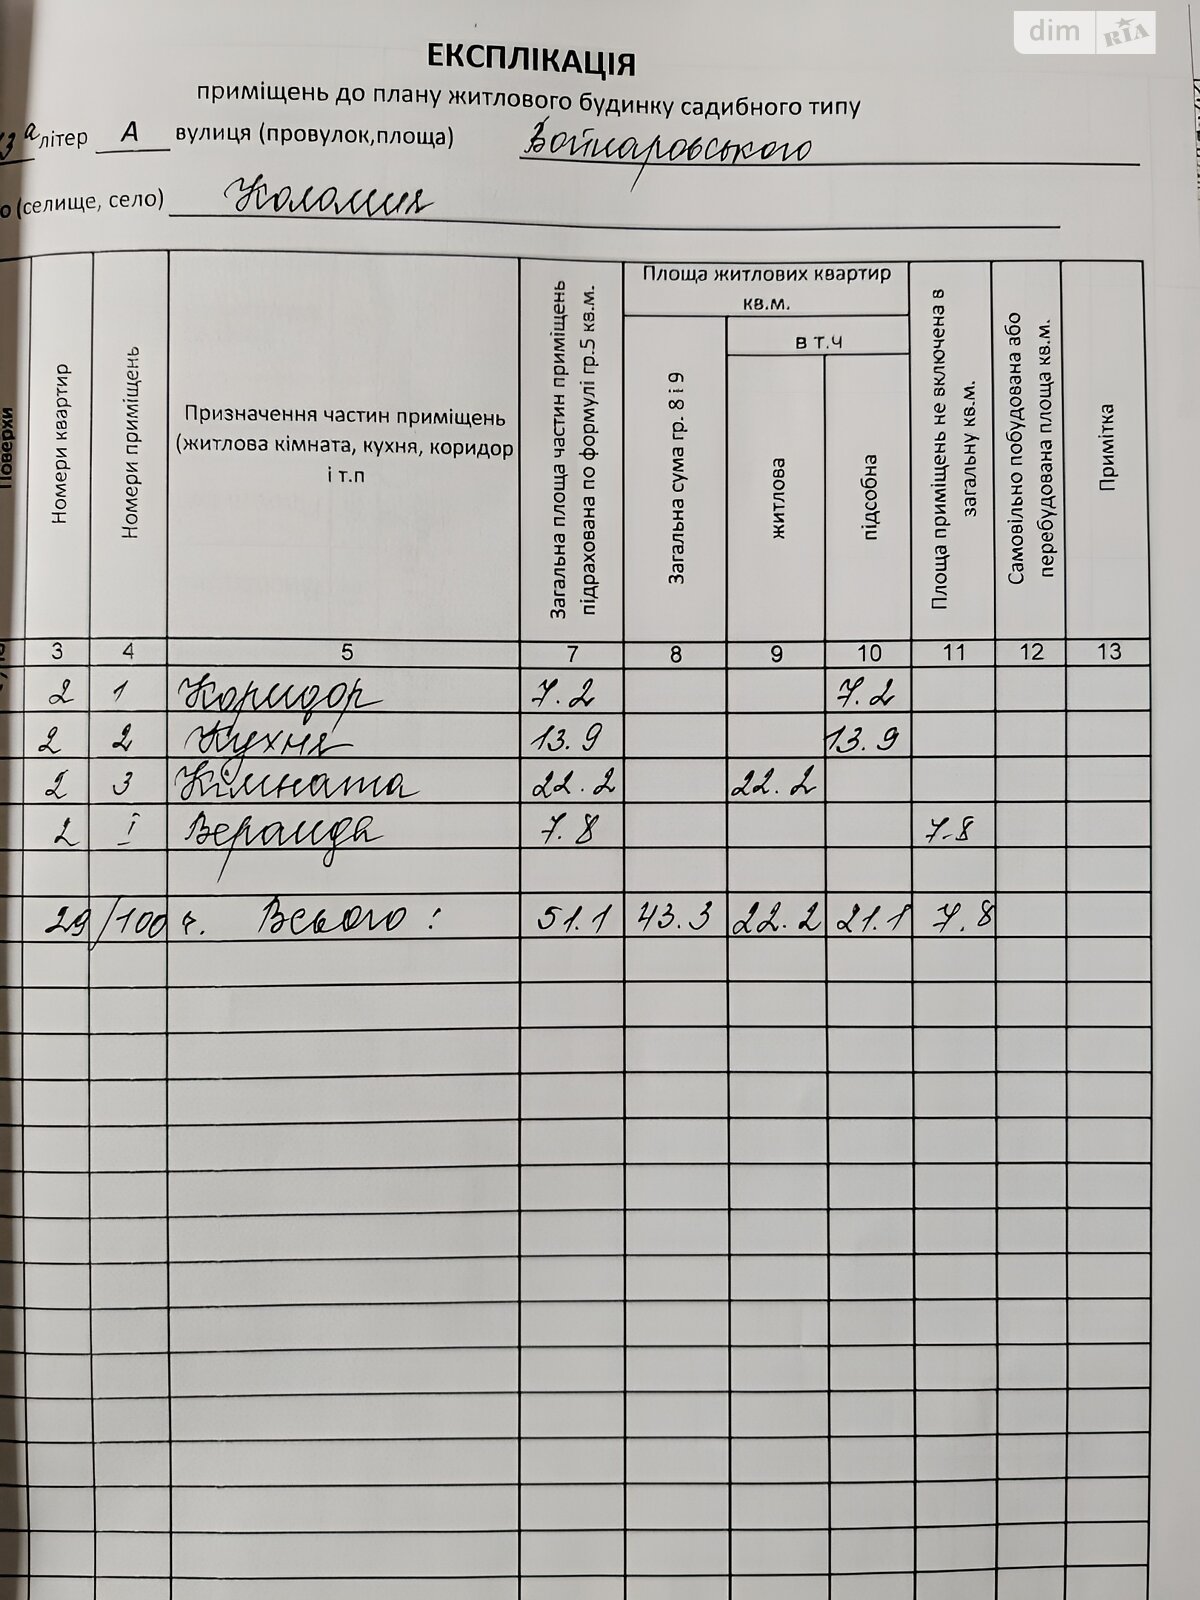 dim RIA
ЕКСПЛІКАЦІЯ
приміщень до плану житлового будинку садибного типу
3а літер А вулиця (провулок,площа) Войнаровського
о (селище, село) Коломия
Поверхи
Номери квартир
Номери приміщень
Призначення частин приміщень
(житлова кімната, кухня, коридор
і т.п
Загальна площа частин приміщень
підрахована по формулі гр.5 кв.м.
Площа житлових квартир
кв.м.
Загальна сума гр. 8 і 9
в т.ч
житлова
підсобна
Площа приміщень не включена в
загальну кв.м.
Самовільно побудована або
перебудована площа кв.м.
Примітка
3 4 5 7 8 9 10 11 12 13
2 1 Коридор 7.2 7.2
2 2 Кухня 13.9 13.9
2 3 Кімната 22.2 22.2
2 І Веранда 7.8 7.8
29/100 ч. Всього: 51.1 43.3 22.2 21.1 7.8